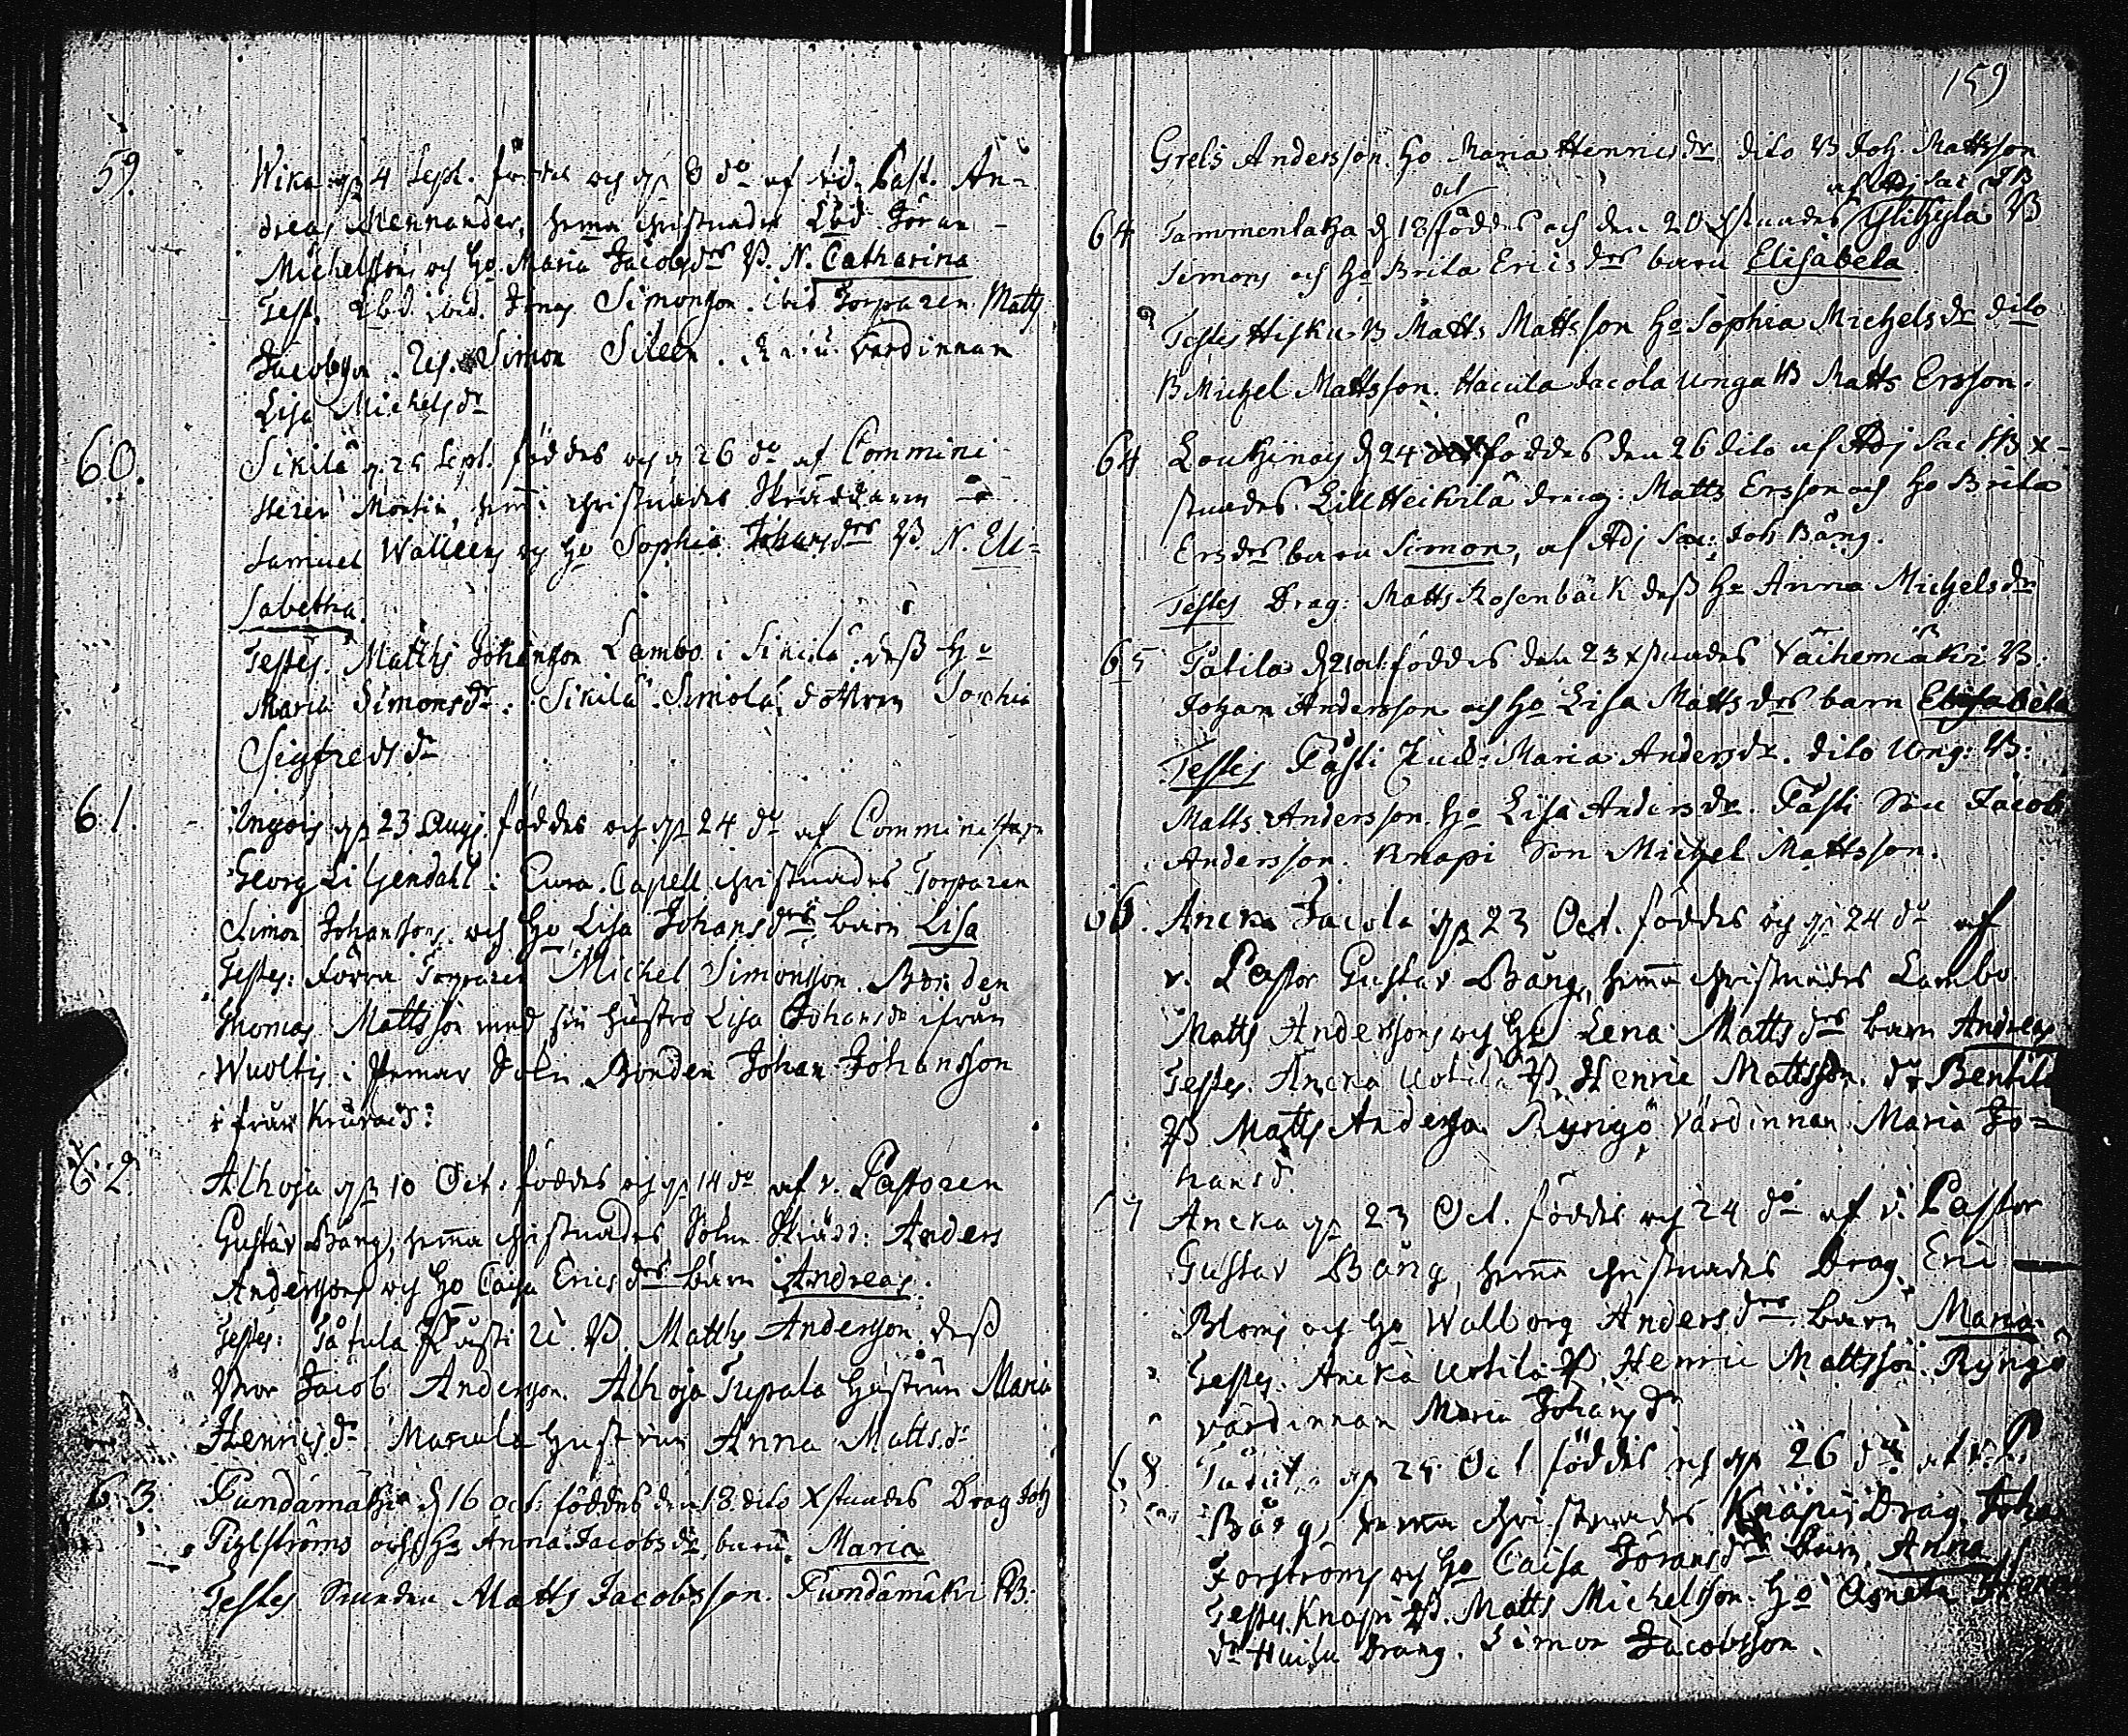 59. Wika 4 Sept. föddes och 8 do af Past. An-
dreas Mennander, hema christnades Göran
Michelssons och Ho. Maria Jacobsdrs B. N. Catharina
Test. ibid. Simonson. ibid Torparen Matts
Jacobson. Simon Sileen. värdinnan
Lisa Michelsdr
60. Sikilä 25 Sept. föddes och 26 do af Commini-
steren Montin, hema christnades Skräddaren
Samuel Walleens och Ho Sophia Johansdrs B. N. Eli-
sabetha.
Testes. Matths Johanson Lambo i Sikilä. dess Ho
Maria Simonsdr. Sikilä Simola dottren Sophia
Sigfredsdr
61. 23 Aug. föddes och 24 do af Comministern
Georg Liljendahl i Eura Capell christnades Torparen
Simon Johanssons och Ho Lisa Johansdrs barn Lisa
Testes: Förra Torparen Michel Simonson. Bonden
Thomas Mattsson med sin hustro Lisa Johansdr ifrån
Wuoltis i Pemar Sokn Bonden Johan Johansson
ifrån
62. Alhoja 10 Oct. föddes och 14 do af v. Pastoren
Gustav Bång, hema christnades Sokne Skrädd: Anders
Anderssons och Ho Caisa Ericsdrs barn Andreas.
Testes: B. Matths Anderson. dess
Bror Jacob Anderson. Alhoja Tupala hustrun Maria
Henricsdr. Marcula hustrun Anna Mattsdr
63. Fundämäki d 16 oct: föddes den 18 dito Xstnades Drag Joh
och Ho Anna Jacobsdrs barn Maria
Testes Matts Jacobsson. Fundämäki B.
159
Grels Andersson. Ho Maria Henricsdr dito B Joh Mattsson
af Adj Sac JB
64 d 18 oct föddes och den 20 Xstnades B
Simons och Ho Brita Ericsdrs barn Elisabeta
Testes Hisku B Matts Mattsson Ho Sophia Michelsdr dito
B Michel Mattsson. Jacola Unga B Matts Ersson.
64 d 24 föddes den 26 dito af Adj Sac JB X-
stnades Lill Heikilä dräng: Matts Ersson och Ho Brita
Ersdrs barn Simon, af Adj Sac: Joh Bång.
Testes Drag: Matts Rosenbäck dess Ho Anna Michelsdr
65 Tatila d 21 oct: föddes den 23 Xstnades Väihemäki B.
Johan Andersson och Ho Lisa Mattsdrs barn Elisabeta
Testes Maria Andersdr. dito Ung: B:
Matts Andersson. Ho Lisa Andersdr. Son Jacob
Andersson. Knapi Son Michel Mattsson.
66. Aneka Jacola 23 Oct. föddes och 24 do af
v. Pastor Gustav Bång, hema christnades Lambo
Matts Anderssons och Ho Lena Mattsdrs barn Andreas
Testes. Aneka Uotila B. Henric Mattsson. do Bentila
B Matts Anderson Ryngö värdinnan Maria Jo-
hansdr.
67 Aneka 23 Oct. föddes och 24 do af v. Pastor
Gustav Bång, hema christnades Drag. Eric
Bloms och Ho Walborg Andersdrs barn Maria.
Testes. Aneka Uotila B. Henric Mattsson. Ryngö
värdinnan Maria Johansdr
68 25 Oct föddes och 26 do af v. P.
Bång, hema christnades Knapi Drag. Joha
Forströms och Ho Caisa Göransdrs barn Anna
Testes. Knapi B. Matts Michelsson. Ho Agneta Henr
dr Drang. Simon Jacobsson.